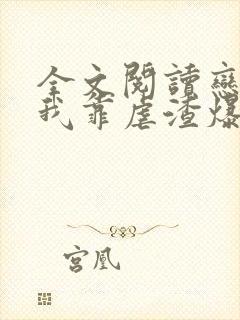 全文閱讀戀
我靠虐渣爆
宮凰